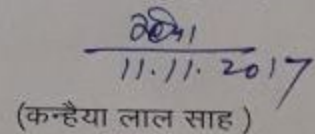 11.11.2017
(कन्हैया लाल साह)